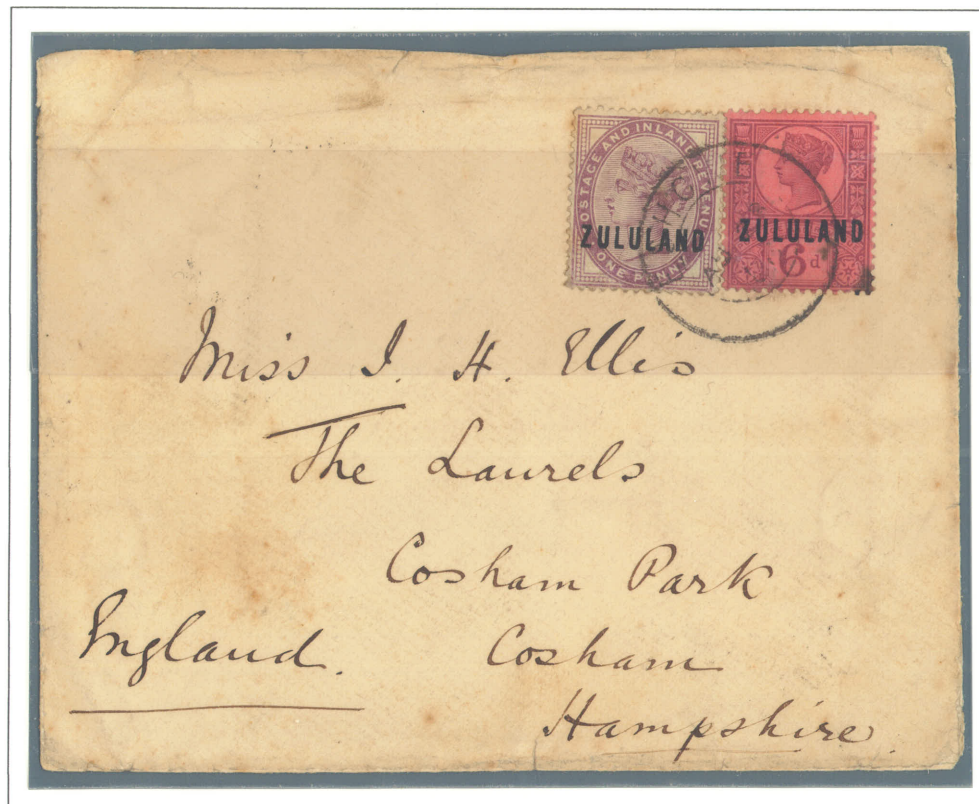 POSTAGE AND INLAND REVENUE
ZULULAND
ONE PENNY
ZULULAND
6d
Miss I. H. Ellis
The Laurels
Cosham Park
Cosham
Hampshire.
England.